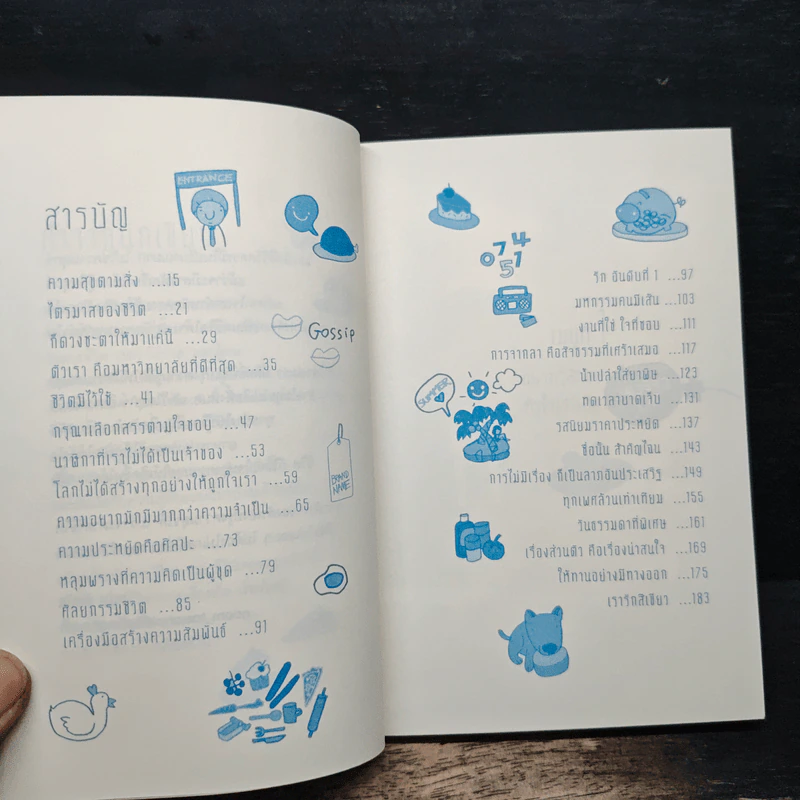 ENTRANCE
สารบัญ
ความสุขตามสั่ง ...15
ไตรมาสของชีวิต ...21
ก็ดวงชะตาให้มาแค่นี้ ...29
ตัวเรา คือมหาวิทยาลัยที่ดีที่สุด ...35
ชีวิตมีไว้ใช้ ...41
กรุณาเลือกสรรตามใจชอบ ...47
นาฬิกาที่เราไม่ได้เป็นเจ้าของ ...53
โลกไม่ได้สร้างทุกอย่างให้ถูกใจเรา ...59
ความอยากมักมีมากกว่าความจำเป็น ...65
ความประหยัดคือศิลปะ ...73
หลุมพรางที่ความคิดเป็นผู้ขุด ...79
ศัลยกรรมชีวิต ...85
เครื่องมือสร้างความสัมพันธ์ ...91
Gossip
BRAND
NAME
074
57
รัก อันดับที่ 1 ...97
มหกรรมคนมีเส้น ...103
งานที่ใช่ ใจที่ชอบ ...111
การจากลา คือสัจธรรมที่เศร้าเสมอ ...117
น้ำเปล่าใส่ยาพิษ ...123
ทดเวลาบาดเจ็บ ...131
รสนิยมราคาประหยัด ...137
ชื่อนั้น สำคัญไฉน ...143
การไม่มีเรื่อง ก็เป็นลาภอันประเสริฐ ...149
ทุกเพศล้วนเท่าเทียม ...155
วันธรรมดาที่พิเศษ ...161
เรื่องส่วนตัว คือเรื่องน่าสนใจ ...169
ให้ทานอย่างมีทางออก ...175
เรารักสีเขียว ...183
SUMMER